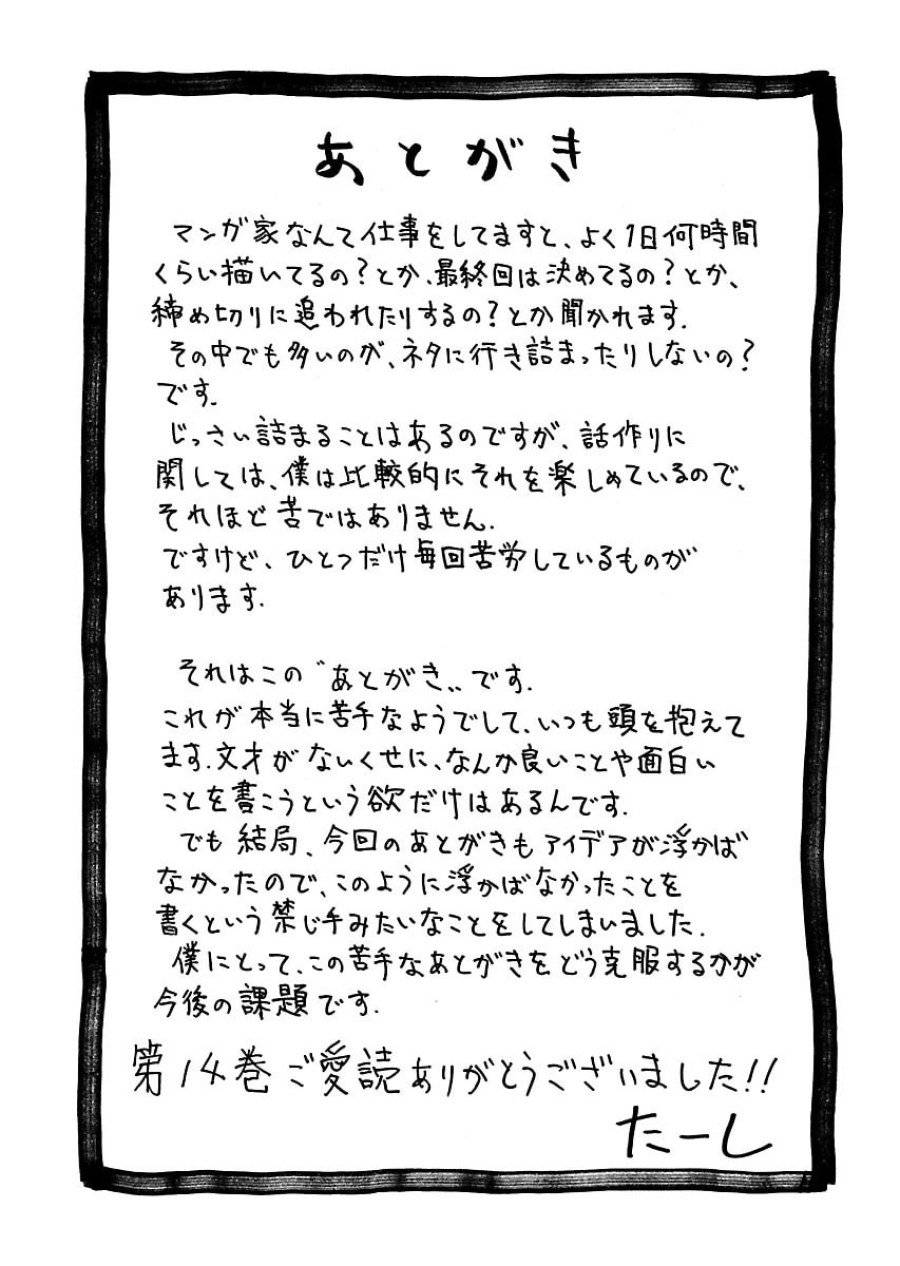 あとがき
マンガ家なんて仕事をしてますと、よく1日何時間
くらい描いてるの?とか、最終回は決めてるの?とか、
締め切りに追われたりするの?とか聞かれます.
その中でも多いのが、ネタに行き詰まったりしないの?
です.
じっさい詰まることはあるのですが、話作りに
関しては、僕は比較的にそれを楽しめているので、
それほど苦ではありません.
ですけど、ひとつだけ毎回苦労しているものが
あります.
それはこの〝あとがき〟です.
これが本当に苦手なようでして、いつも頭を抱えて
ます.文才がないくせに、なんか良いことや面白い
ことを書こうという欲だけはあるんです.
でも結局、今回のあとがきもアイデアが浮かば
なかったので、このように浮かばなかったことを
書くという禁じ手みたいなことをしてしまいました.
僕にとって、この苦手なあとがきをどう克服するかが
今後の課題です.
第14巻ご愛読ありがとうございました!!
たーし